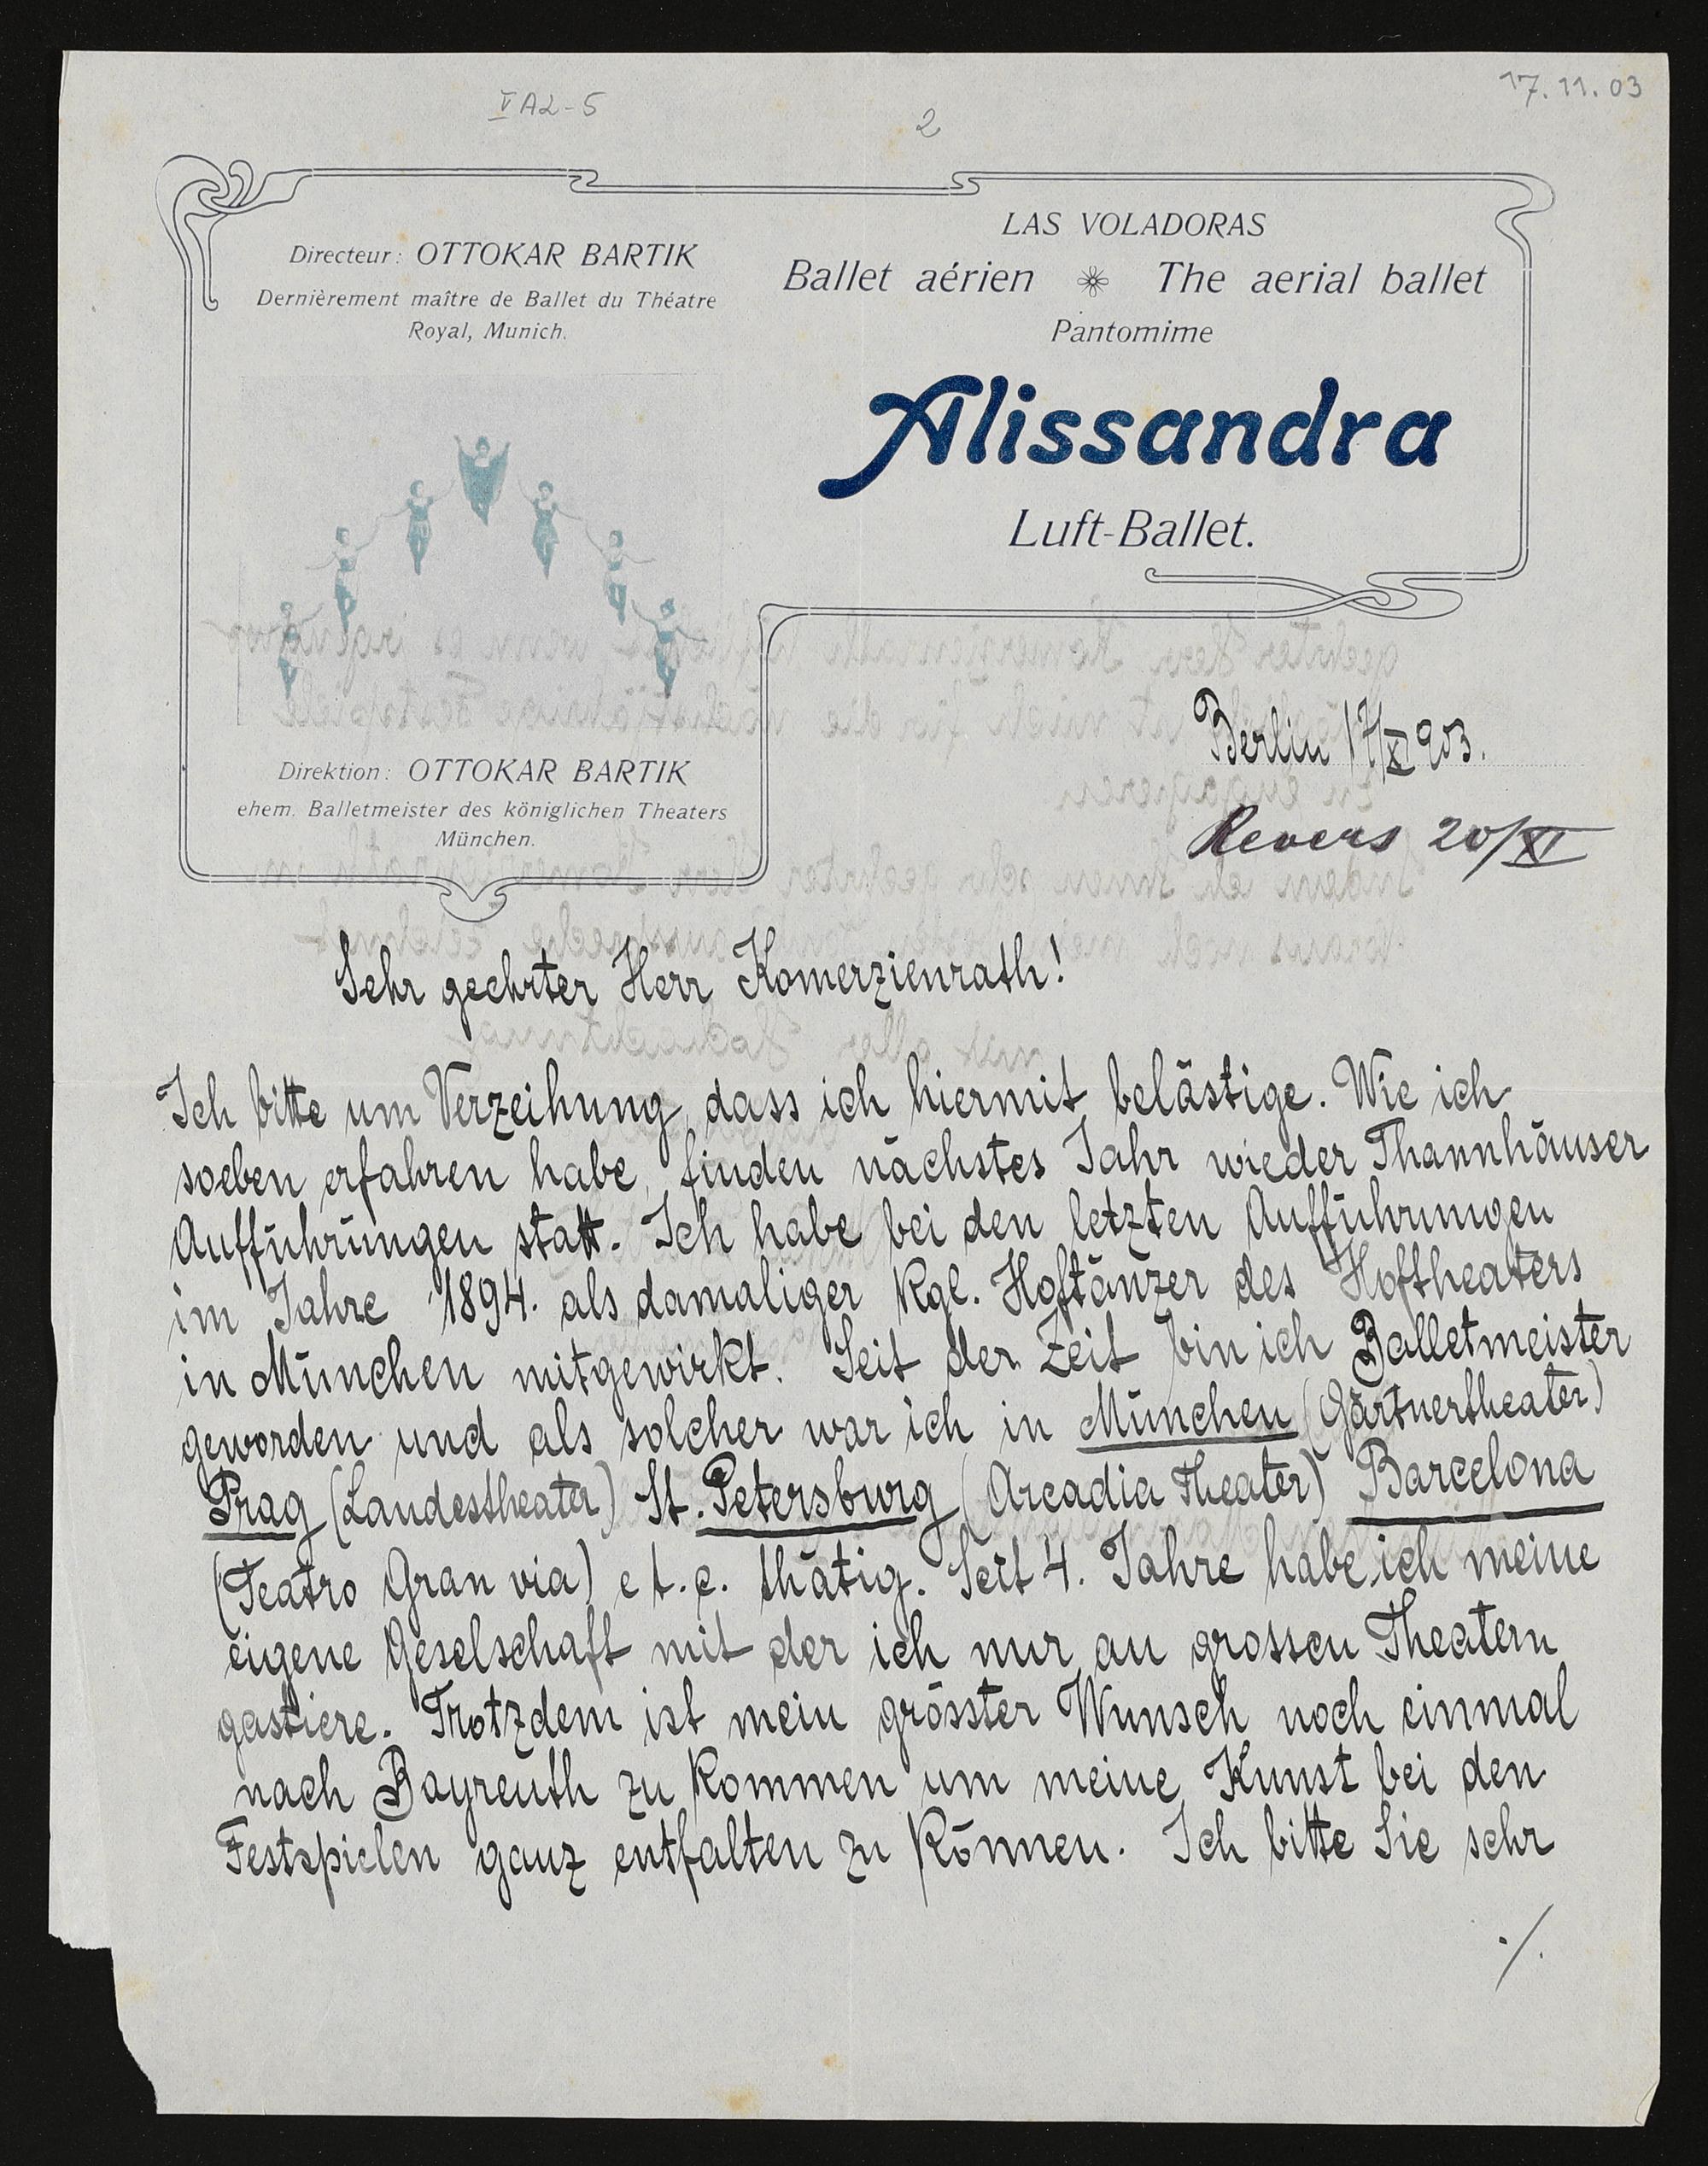 V A2-5
2
17.11.03
Directeur: OTTOKAR BARTIK
Dernièrement maître de Ballet du Théatre
Royal, Munich.
LAS VOLADORAS
Ballet aérien The aerial ballet
Pantomime
Alissandra
Luft-Ballet.
Direktion: OTTOKAR BARTIK
ehem. Balletmeister des königlichen Theaters
München.
Berlin 17/XI 903.
Revers 20/XI
Sehr geehrter Herr Komerzienrath!
Ich bitte um Verzeihung, dass ich hiermit belästige. Wie ich
soeben erfahren habe, finden nächstes Jahr wieder Thannhäuser
Aufführungen statt. Ich habe bei den letzten Aufführungen
im Jahre 1894. als damaliger Kgl. Hoftänzer des Hoftheaters
in München mitgewirkt. Seit der Zeit bin ich Balletmeister
geworden und als solcher war ich in München (Gärtnertheater)
Prag (Landestheater) St. Petersburg (Arcadia Theater) Barcelona
(Teatro Gran via) e t. c. thätig. Seit 4. Jahre habe ich meine
eigene Geselschaft mit der ich nur an grossen Theatern
gastiere. Trotzdem ist mein grösster Wunsch noch einmal
nach Bayreuth zu kommen um meine Kunst bei den
Festspielen ganz entfalten zu können. Ich bitte Sie sehr
./.